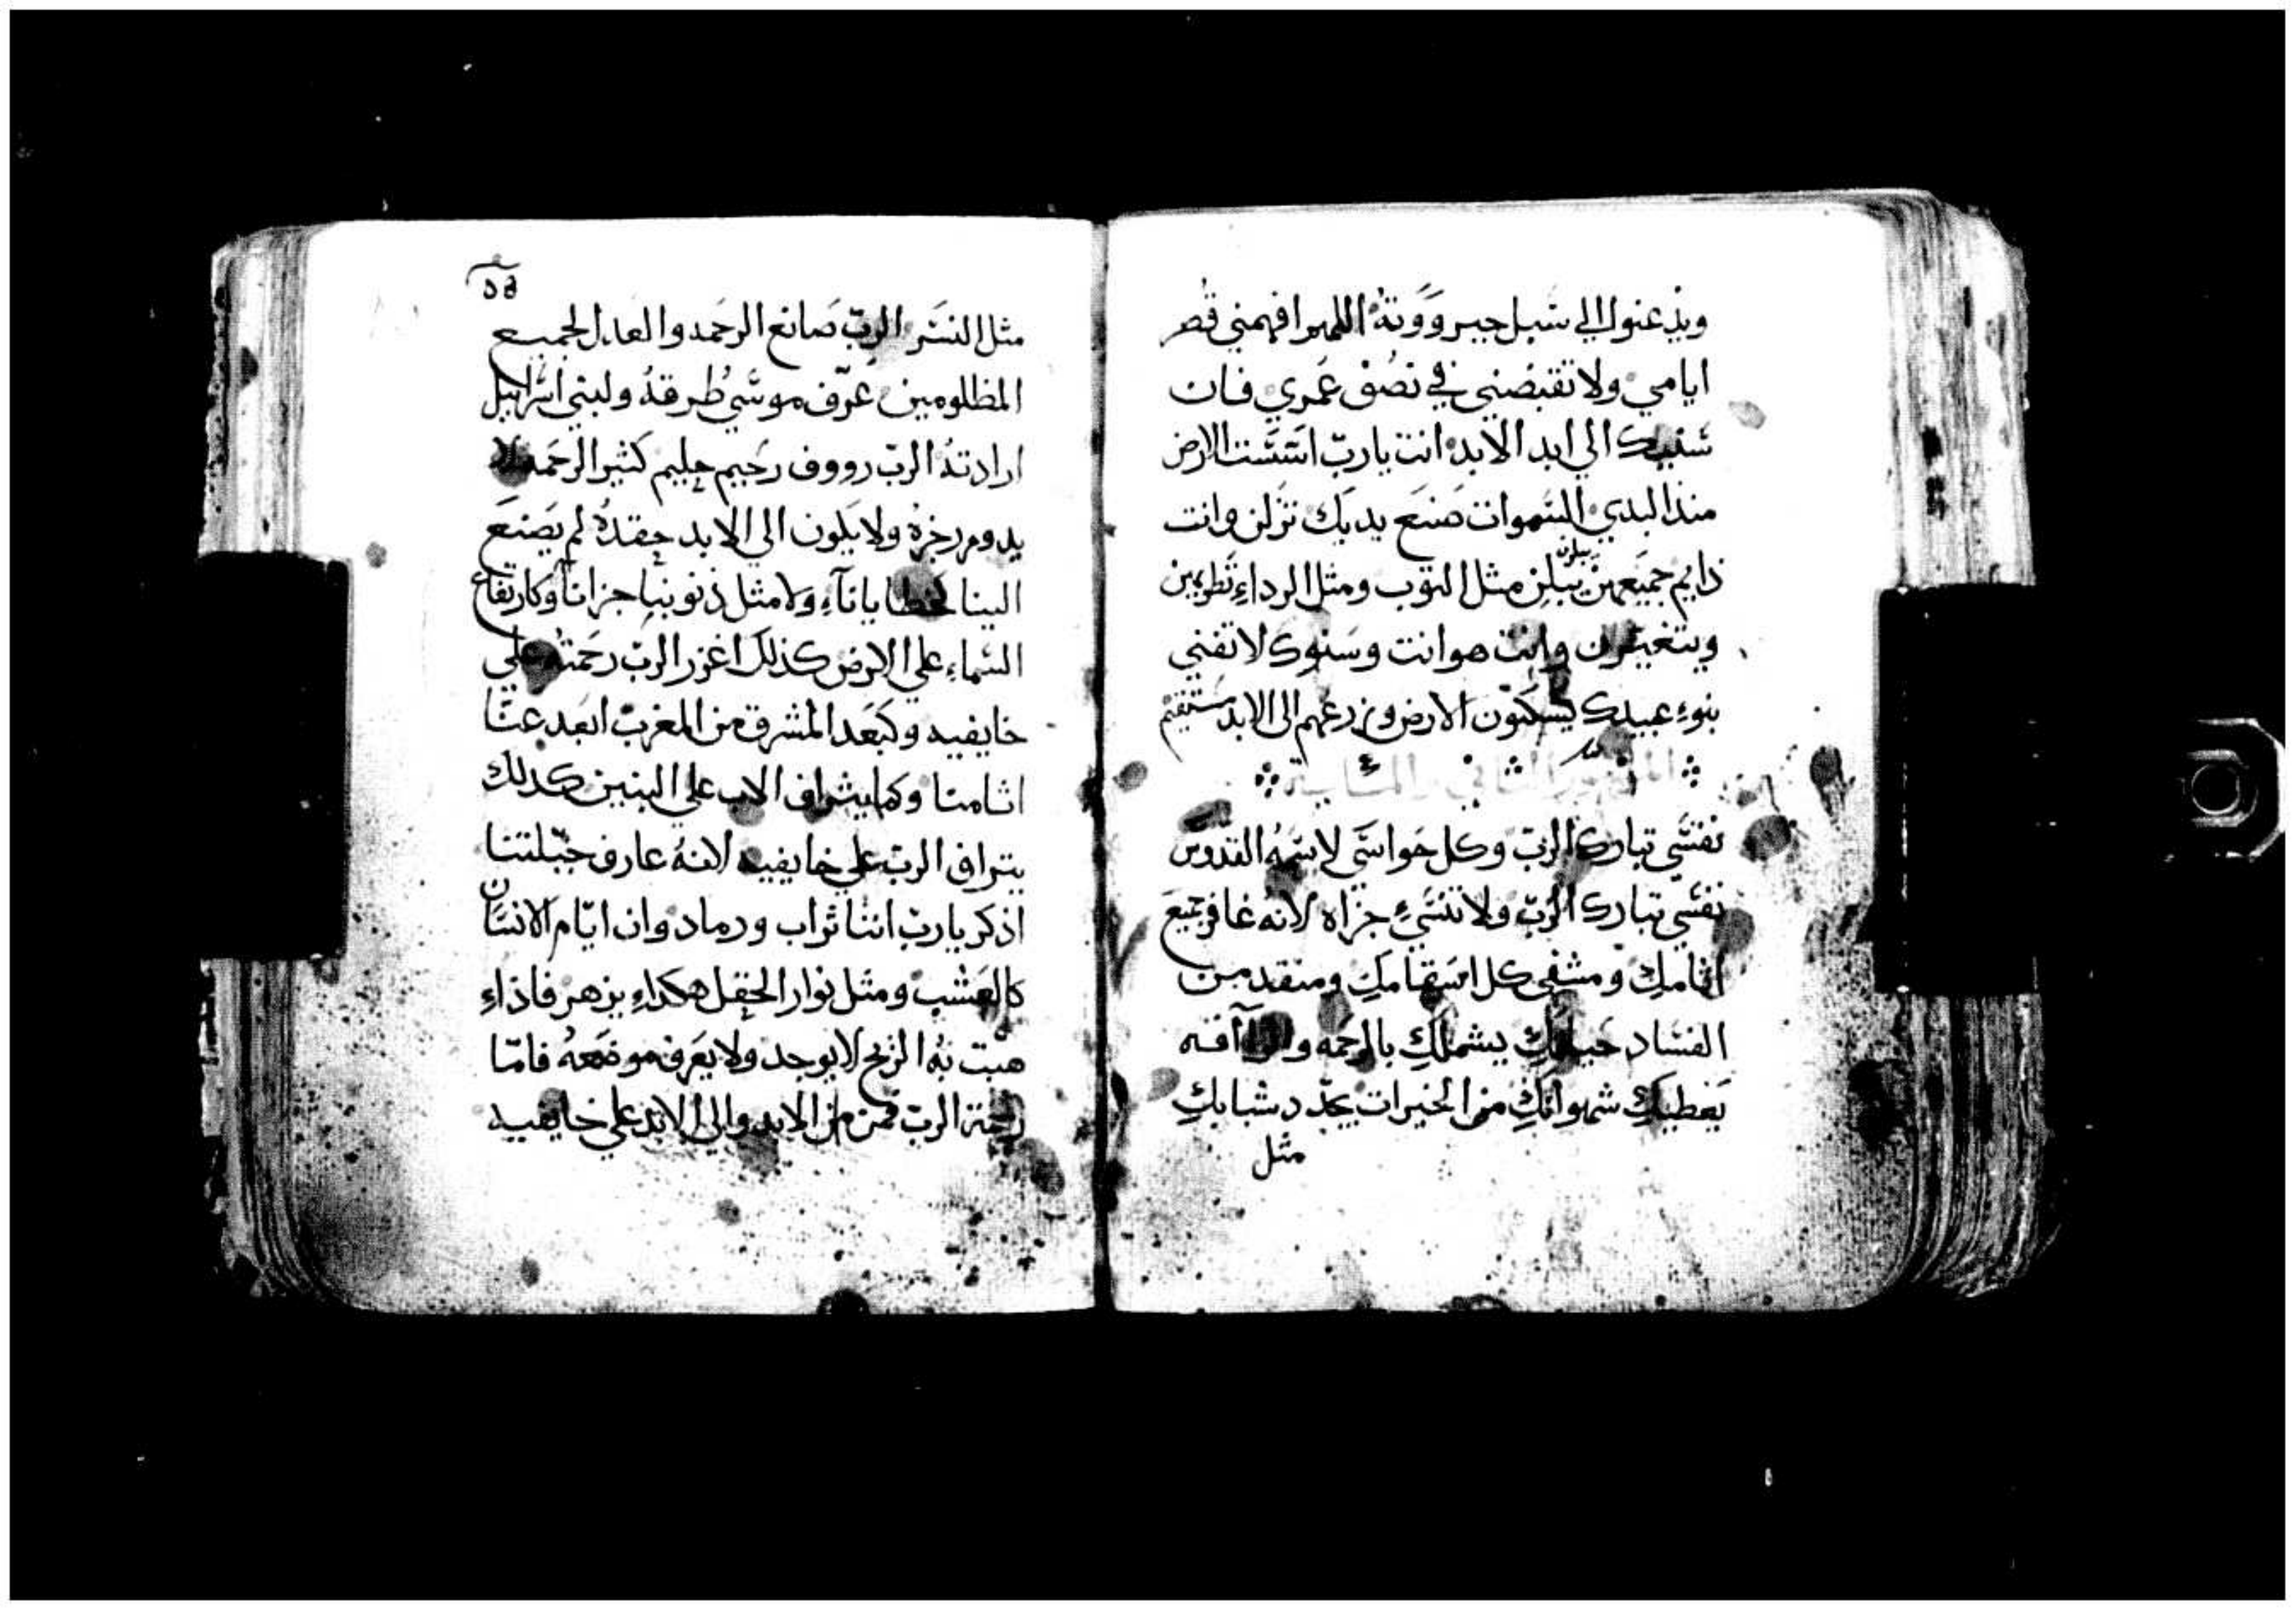 ويذعنوا الي سبل جبرووته اللهم افهمني قصر
ايامي ولا تقبضني في نصف عمري فان
سنيك الي ابد الابد انت يا رب اسست الارض
منذ البدي السموات صنع يديك تزلن وانت
دايم جميعهن يبلن مثل الثوب ومثل الرداء تطويهن
يبلون
ويتغيرن وانت هو انت وسنوك لا تفني
بنوء عبيدك يسكنون الارض وزرعهم الى الابد يستقيم
المزمور الثاني والمـايـة
نفسي تبارك الرب وكل حواسي لاسمه القدوس
نفسي تبارك الرب ولا تنسيء جزاه لانه غافر جميع
اثامكِ ومشفي كل اسقامكِ ومنقد من
الفساد حياتكِ يشملكِ بالرحمه والراآفه
يعطيكِ شهواتكِ من الخيرات يجدد شبابكِ
مثل
مثل النسر الرب صانع الرحمه والعدل لجميع
المظلومين عرّف موسي طرقه ولبني اسراييل
ارادته الرب رووف رحيم حليم كثير الرحمه لا
يدوم رجزه ولا يكون الي الابد حقده لم يصنع
الينا كخطايانآء ولا مثل ذنوبنا جزانا وكارتفاع
السماء علي الارض كذلك اغزر الرب رحمته علي
خايفيه وكبعد المشرق من المغرب ابعد عنا
اثامنا وكما يتراف الاب علي البنين كدلك
يتراف الرب علي خايفيه لانه عارف جبلتنا
اذكر يا رب اننا تراب ورماد وان ايام الانسان
كالعشب ومثل نوار الحقل هكداء يزهر فاذاء
هبت به الريح لا يوجد ولا يعرف موضعه فامّا
رحمة الرب فمن من الابد والي الابد علي خايفيه